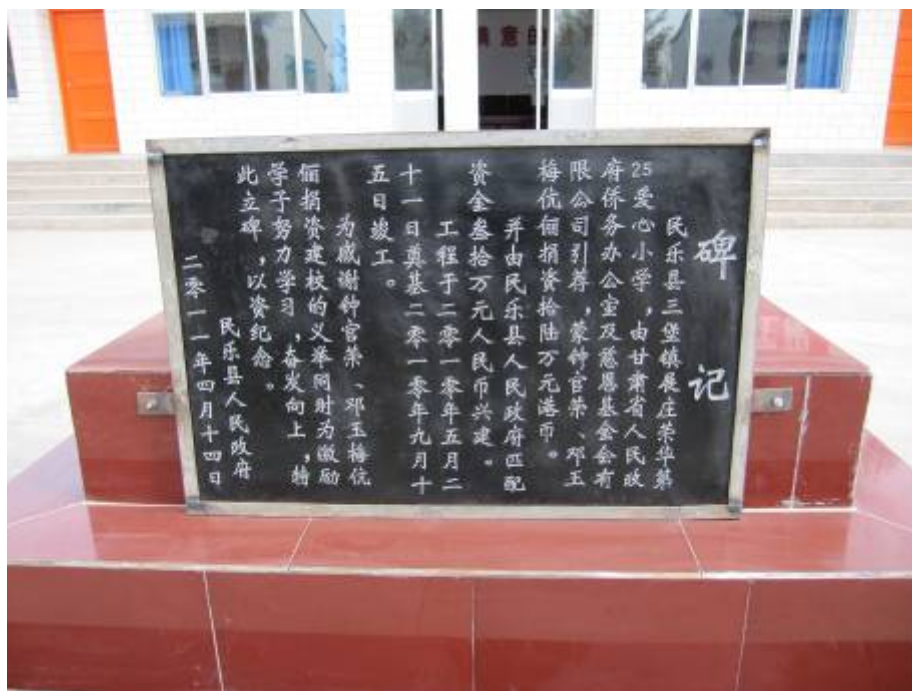 碑记
民乐县三堡镇展庄荣华第
25爱心小学，由甘肃省人民政
府侨务办公室及慈恩基金会有
限公司引荐，蒙钟官荣、邓玉
梅伉俪捐资拾陆万元港币。
并由民乐县人民政府匹配
资金叁拾万元人民币兴建。
工程于二零一零年五月二
十一日奠基二零一零年九月十
五日竣工。
为感谢钟官荣、邓玉梅伉
俪捐资建校的义举同时为激励
学子努力学习，奋发向上，特
此立碑，以资纪念。
民乐县人民政府
二零一一年四月十四日
意的